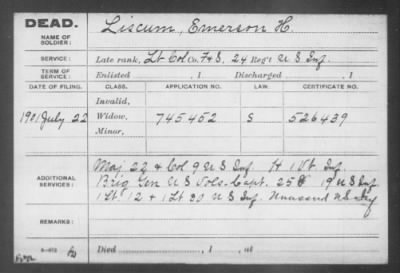 DEAD.
NAME OF SOLDIER: Liscum, Emerson H
SERVICE: Late rank, Lt Col Co. F&S, 24 Reg't U S Inf.
TERM OF SERVICE: Enlisted , 1 Discharged , 1
DATE OF FILING. CLASS. APPLICATION NO. LAW. CERTIFICATE NO.
Invalid,
1901 July 22 Widow, 745452 S 526439
Minor,
ADDITIONAL SERVICES: Maj. 22 & Col 9 U S Inf. H 1 Vt. Inf.
Brig Gen U S Vols. Capt. 25 & 19 U S Inf
1 Lt. 12 & 1 Lt 30 U S Inf. Unassnd U S Inf
REMARKS:
Died , 1 , at